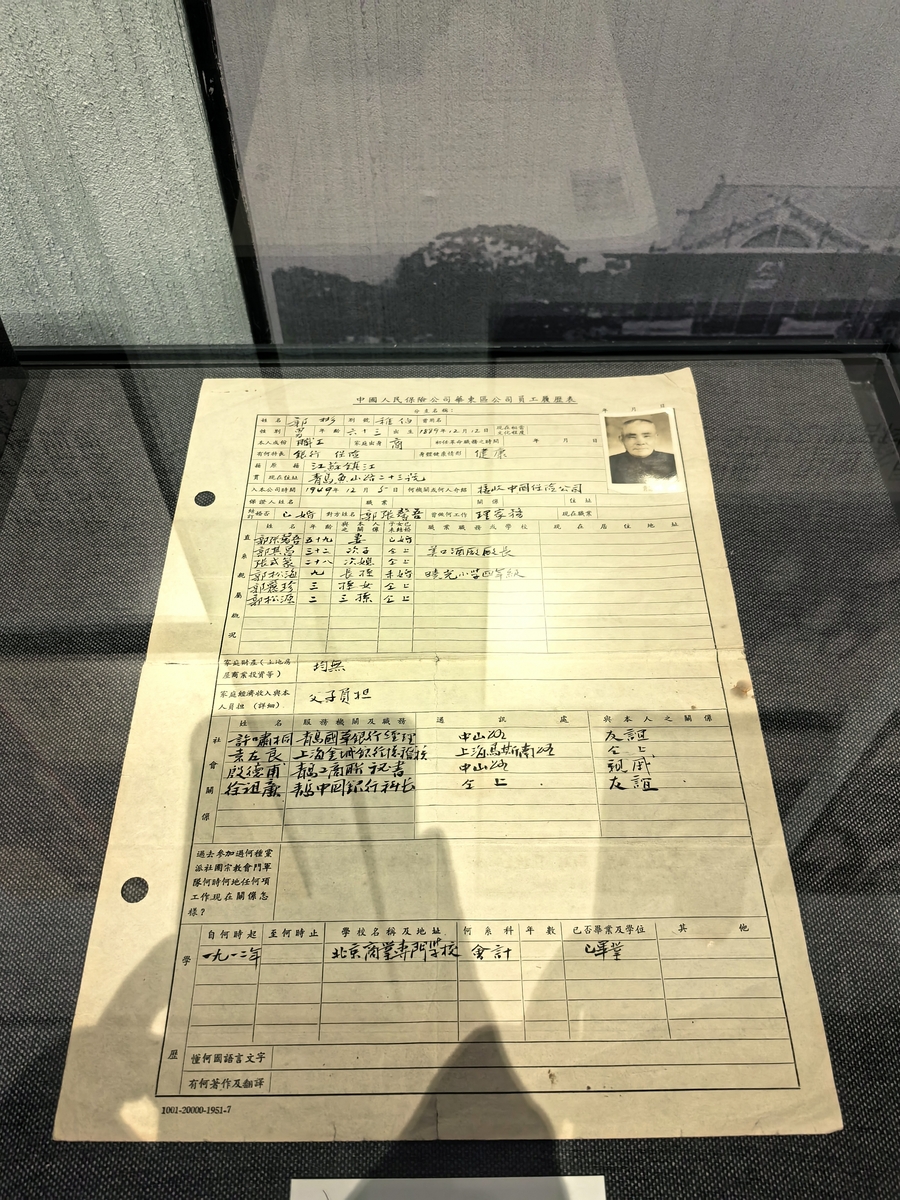 中國人民保險公司華東區公司員工履歷表
分支名稱：
年 月 日
姓名 郭彬 別號 稚伯 曾用名
性別 男 年齡 六十三 出生 1889年12月12日 現在相當文化程度
本人成份 職工 家庭出身 商 初任革命職務之時間 年 月 日
有何特長 銀行 保險 身體健康情形 健康
籍貫 原籍 江蘇鎮江
現在住址 青島魚山路二十三號
入本公司時間 1949年12月5日 何機關或何人介紹 接收中國保險公司
保證人姓名 職業 關係 住址
結婚否 已婚 對方姓名 郭張馨吾 曾做何工作 理家務 現在職業
直系親屬概況
姓名 年齡 與本人之關係 子女已未結婚 職業職務或學校 現在居住地址
郭張馨吾 五十九 妻 已婚
郭其昌 三十二 次子 仝上
二十八 次媳 仝上
郭松海 九 長孫 未婚 曉光小學四年級
郭 珍 三 孫女 仝上
郭松源 二 三孫 仝上
家庭財產（土地房屋商業投資等） 均無
家庭經濟收入與本人負担（詳細） 父子負担
社會關係
姓名 服務機關及職務 通訊處 與本人之關係
許嘯桐 青島國華銀行經理 中山路 友誼
袁左良 上海金城銀行 上海馬斯南路 仝上
殷德甫 青島工商聯秘書 中山路 親戚
徐祖康 青島中國銀行科長 仝上 友誼
過去參加過何種黨派社團宗教會門軍隊何時何地任何項工作現在關係怎樣？
學歷
自何時起 至何時止 學校名稱及地址 何系科 年數 已否畢業及學位 其他
一九一二年 北京商業專門學校 會計 已畢業
懂何國語言文字
有何著作及翻譯
1001-20000-1951-7